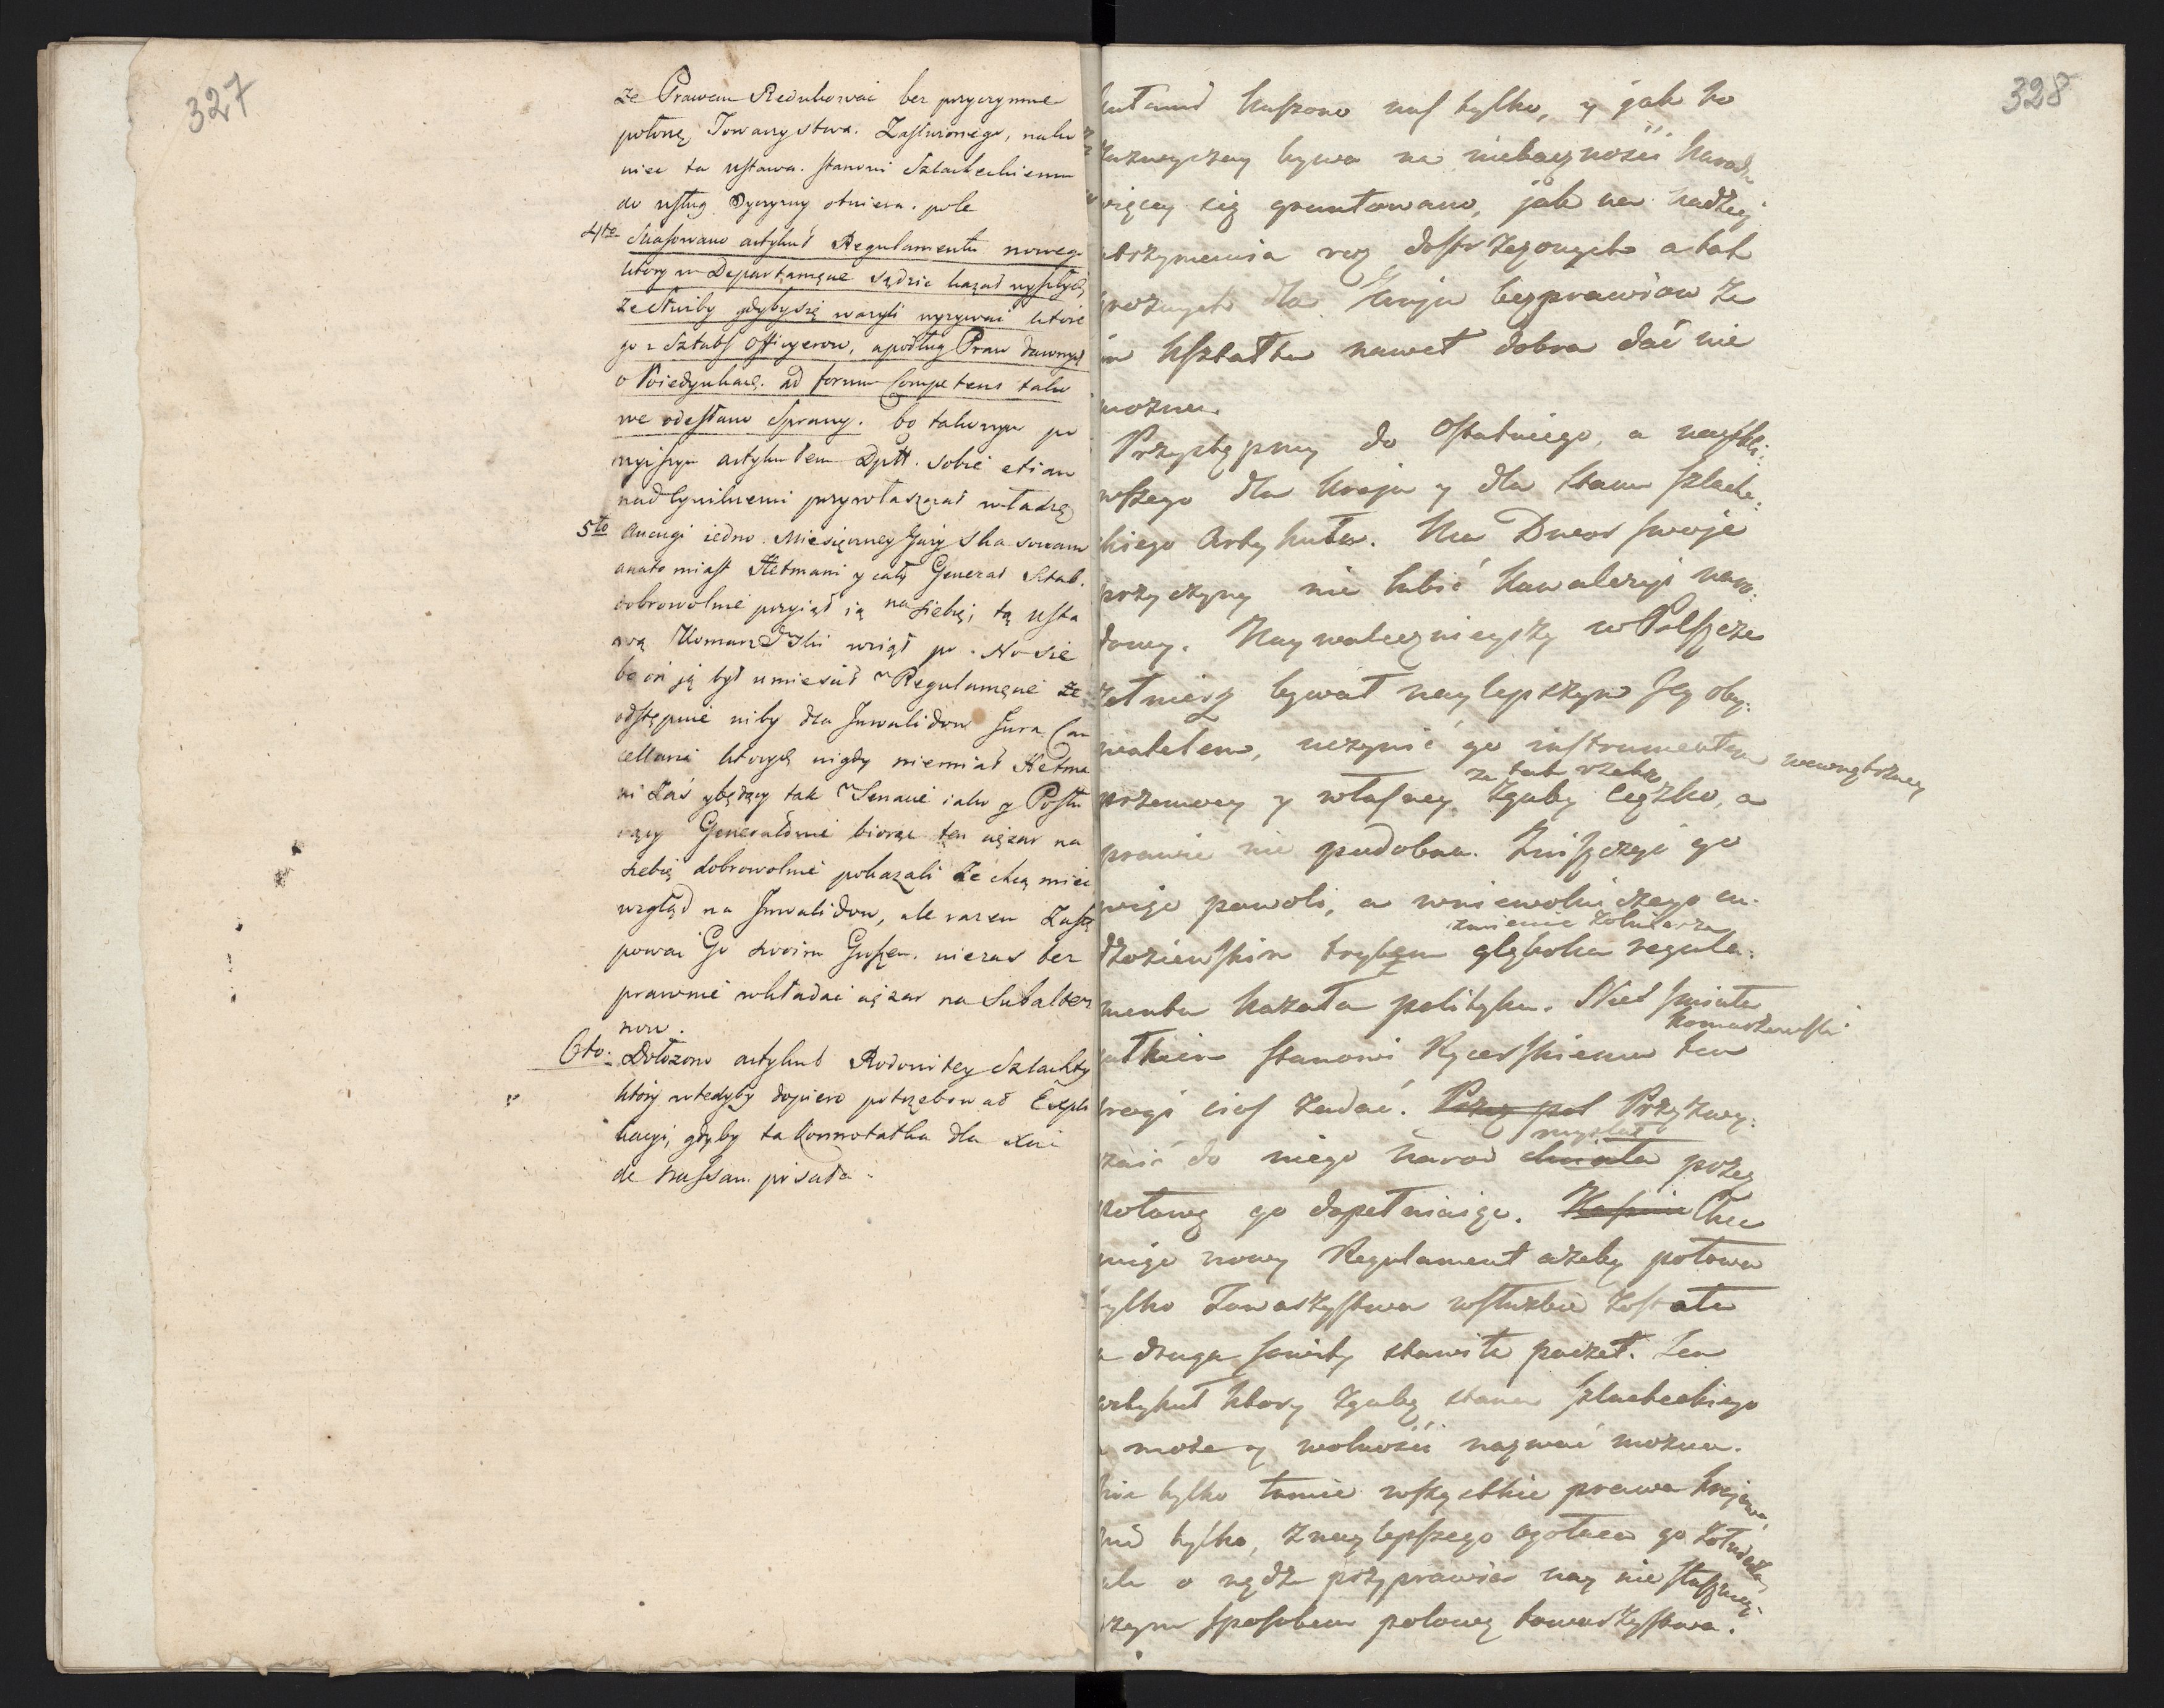 327
że Prawem Redukować bez przyczynnie
połowę Towarzystwa. Zasłużonego, nako
niec ta ustawa. stanowi Szlacheckiemu
do usług Oyczyzny otwiera. pole
4to Skasowano artykuł Regulamentu nowego
ktory w Departamęcie sądzić kazał wyszłych
ze Służby gdyby się ważyli wyzywać które
go z Sztabs Officyerow, a podług Praw dawnych
o Poiedynkach. ad forum Competens tako
we odesłano Sprawy. bo takowym po
wyiszym artykułem Dptt. sobie etiam
nad Cywilnemi przywłaszczał władzę
5to Ancugi iedno Miesięczney Gaży skasowano
anato miast Hetmani y cały Generał Sztab.
dobrowolnie przyiął ią na siebie, tą usta
wą Komarzewski wziął po Nosie
bo on ją był umieścił w Regulamęcie że
odstępnie niby dla Inwalidow Jura Can
cellarii ktorych nigdy niemiał Hetma
ni zaś y będący tak w Senacie iako y Posłu
iący Generałowie biorąc ten ciężar na
siebie dobrowolnie pokazali że chcą mieć
wzgląd na Inwalidow, ale razem Zastę
pować Go swoim Groszem. nieraz bez
prawnie wkładać ciężar na Subalter
now.
6to. Dołożono artykuł Rodowitey Szlachty
ktory wtedyby dopiero potrzebował Expli
kacyi, gdyby ta konnotatka dla Xcia
de Nassau. pisała.
328
kutami kuszono nas tylko, y jak to
zazwyczay bywa na niebacznosci Narodu
więcey się gruntowano, jak na nadziej
utrzymania raz dostrzezonych a tak
groznych dla Kraju bezprawiow że
im kształtu nawet dobra dać nie
mozna.
Przystępmy do Ostatniego, a nayszko:
wszego dla Kraju y dla stanu szlache:
ckiego Artykułu. Ma Dwor swoje
przyczyny nie lubić kawaleryi naro:
dowey. Naywalecznieyszy w Polszcze
żołnierz bywał naylepszym Jey oby:
watelem, uczynić go instrumentem wewnętrzney
za tak rzekę
przemocy y własney zguby ciężko, a
prawie nie podobna. Zniszczyć go
więc powoli, a w niewolniczego cu:
zamienić żołnierza
dzoziemskim trybem głęboka regula:
menta kazała polityka. Nad światu
Komarzewski
Stanowi Rycerskiemu ten
drugi cios zadać. Przez poł Przyzwy:
myslał
czaić do niego narod chciała przez
połowę go dopełniaiąc. Chce
więc nowy Regulament ażeby połowa
tylko Towarzystwa w służbie została
a druga stawiła poczet. Ten
artykuł ktory zgubą stanu szlacheckiego
a może y wolności nazwać mozna.
Nie tylko łamie wszystkie prawa krajowe,
nie tylko, z naylepszego ogołaca go żołnierza,
ale o nędzę przyprawia nay nie słuszniey
szym sposobem połowę towarzystwa.